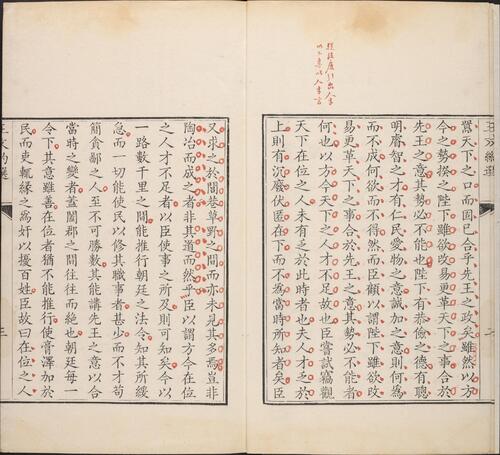 提段虛引出人才
以下專以人才言
囂天下之口而固已合乎先王之政矣雖然以方
今之勢揆之陛下雖欲改易更革天下之事合於
先王之意其勢必不能也陛下有恭儉之德有聰
明睿智之才有仁民愛物之意誠加之意則何為
而不成何欲而不得然而臣顧以謂陛下雖欲改
易更革天下之事合於先王之意其勢必不能者
何也以方今天下之人才不足故也臣嘗試竊觀
天下在位之人未有乏於此時者也夫人才乏於
上則有沉廢伏匿在下而不為當時所知者矣臣
又求之於閭巷草野之間而亦未見其多焉豈非
陶冶而成之者非其道而然乎臣以謂方今在位
之人才不足者以臣使事之所及則可知矣今以
一路數千里之間能推行朝廷之法令知其所緩
急而一切能使民以修其職事者甚少而不才苟
簡貪鄙之人至不可勝數其能講先王之意以合
當時之變者蓋闔郡之間往往而絕也朝廷每一
令下其意雖善在位者猶不能推行使膏澤加於
民而吏輒緣之為奸以擾百姓臣故曰在位之人
王文約選
三